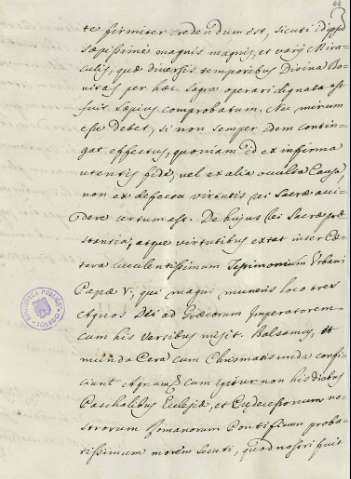 te firmiter credendum est, sicuti id ipsū
sæpissimè magnis magnis, et varijs Mira-
culis, quæ diversis temporibus Divina Bo-
nitas per hæc Sacra operari dignata est
fuit sæpius comprobatum. Nec mirum
esse debet, si non semper idem contin-
gat effectus, quoniam id ex infirma
utentis fide, vel ex alia occulta Causa,
non ex defectu virtutis rei Sacræ acci-
dere certum est. De hujus rei Sacræ præ-
stantia, atque virtutibus extat inter cæ-
tera luculentissimum Testimonium Urbani
Papæ V, qui magni muneris loco tres
Agnos Dei ad Græcorum Imperatorem
cum his Versibus misit. Balsamus, et
munda Cera cum Chrismatis unda confi-
ciunt Agnum &c. Cum igitur nos his diebus
Paschalibus Ecclesiæ, et Prædecessorum nos-
trorum Romanorum Pontificum proba-
tissimum morem secuti, quod nostri fuit